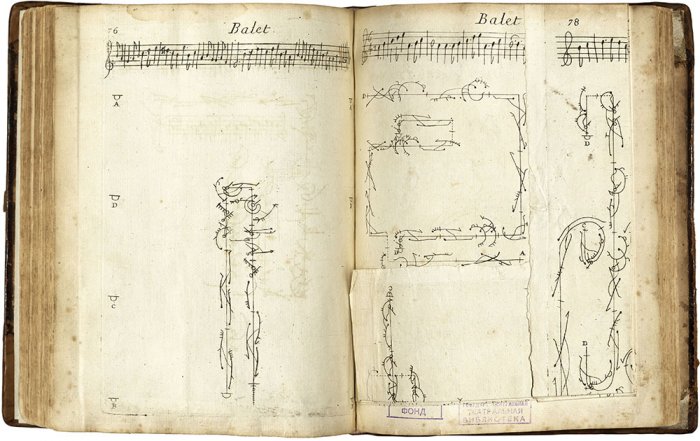 76 Balet.
A
D
C
B
D
Balet 78
D
A
D
B
ФОНД
ТЕАТРАЛЬНАЯ
БИБЛИОТЕКА